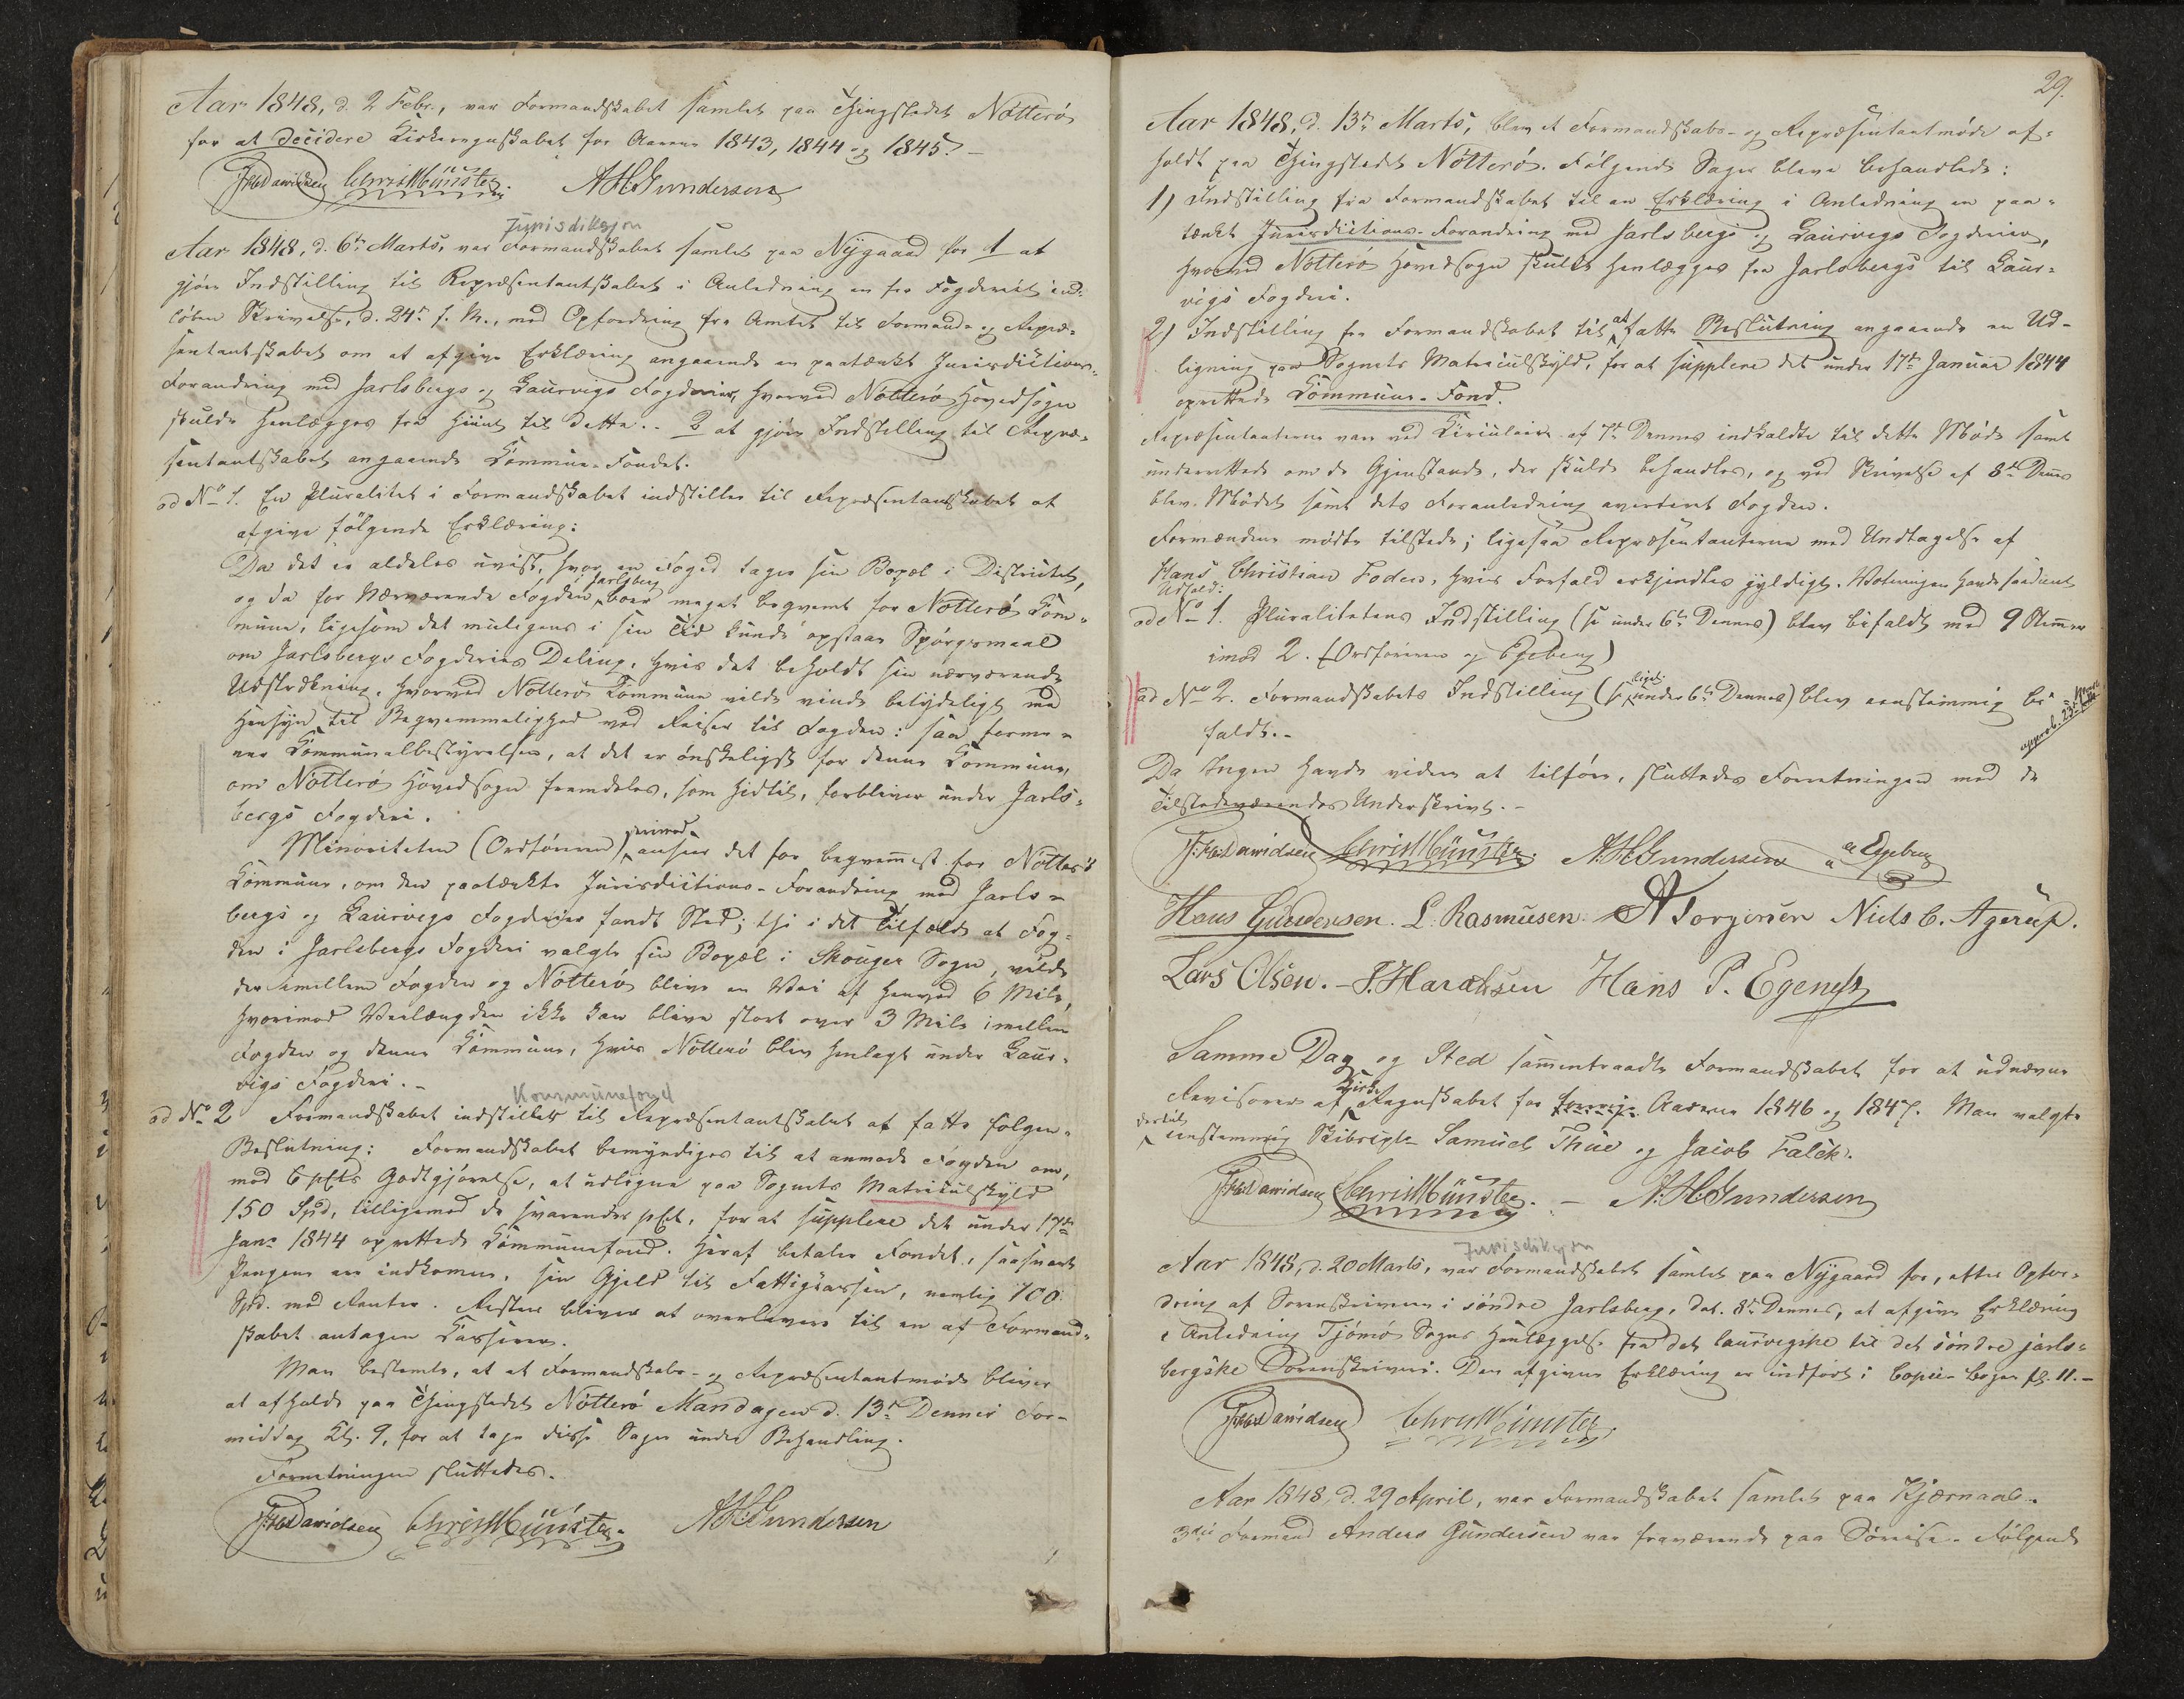 Aar 1848, d. 2 Febr., var Formandskabet samlet paa Thingstedet Nötterö
for at decidere Kirkeregnskabet for Aarene 1843, 1844 og 1845. –
FrbDavidsen Chris Münster. AHGundersen
Jurisdiksjon
Aar 1848, d. 6te Marts, var Formandskabet samlet paa Nÿgaard for 1 at
gjöre Indstilling til Repræsentantskabet i Anledning en fra Fogderiet ind-
löben Skrivelse, d. 24de f. M., med Opfordring fra Amtet til Formands- og Repræ-
sentantskabet om at afgive Erklæring angaaende en paatænkt Jurisdictions-
Forandring med Jarlsbergs og Laurvigs Fogderier, hvorved Nötterö Hovedsogn
skulde henlægges fra hiint til dette. – 2 at gjöre Indstilling til Repræ-
sentantskabet angaaende Kommune-Fondet.
ad No 1. En Pluralitet i Formandskabet indstiller til Repræsentantskabet at
afgive fölgende Erklæring:
Da det er aldeles uvist, hvor en Foged tager sin Bopæl i Districtet,
og da for Nærværende Fogden i Jarlsberg boer meget beqvemt for Nötterö Kom-
mune, ligesom det muligens i sin Tid kunde opstaae Spörgsmaal
om Jarlsbergs Fogderies Deling, hvis det beholdt sin nærværende
Udstrækning, hvorved Nötterö Kommune vilde vinde betydeligt med
Hensyn til Beqvemmelighed ved Reiser til Fogden: saa forme-
ner Kommunalbestyrelsen, at det er önskeligst for denne Kommune,
om Nötterö Hovedsogn fremdeles, som hidtil, forbliver under Jarls-
bergs Fogderi.
Minoriteten (Ordföreren) derimod anseer det for beqvemmest for Nötterö
Kommune, om den paatænkte Jurisdictions-Forandring med Jarls-
bergs og Laurvigs Fogderier fandt Sted; thi i det Tilfælde at Fog-
den i Jarlsbergs Fogderi valgte sin Bopæl i Skouger Sogn, vilde
der imellem Fogden og Nötterö blive en Vei af henved 6 Mile,
hvorimod Veilængden ikke kan blive stort over 3 Mile imellem
Fogden og denne Kommune, hvis Nötterö blev henlagt under Laur-
vigs Fogderi. –
Kommunefond
ad No 2 Formandskabet indstiller til Repræsentantskabet at fatte fölgen-
Beslutning: Formandskabet bemyndiges til at anmode Fogden om,
mod 6 pCts Godtgjörelse, at udligne paa Sognets Matriculskyld
150 Spd, tilligemed de svarende pCt., for at supplere det under 17de
Janr 1844 oprettede Kommunefond. Heraf betaler Fondet, saasnart
Pengene ere indkomne, sin Gjeld til Fattigkassen, nemlig 100
Spd. med Renter. Resten bliver at overlevere til en af Formand-
skabet antagen Kasserer.
Man bestemte, at et Formandskabs- og Repræsentantmöde bliver
at afholde paa Thingstedet Nötterö Mandagen d. 13de Dennes For-
middag Kl. 9, for at tage disse Sager under Behandling.
Forretningen sluttedes.
FrbDavidsen Chris Münster. AHGundersen
29.
Aar 1848, d. 13de Marts, blev et Formandskabs- og Repræsentantmöde af-
holdt paa Thingstedet Nötterö. Fölgende Sager bleve behandlede:
1) Indstilling fra Formandskabet til en Erklæring i Anledning en paa-
tænkt Jurisdictions-Forandring med Jarlsbergs og Laurvigs Fogderier,
hvorved Nötterö Hovedsogn skulde henlægges fra Jarlsbergs til Laur-
vigs Fogderi.
2) Indstilling fra Formandskabet til at fatte Beslutning angaaende en Ud-
ligning paa Sognets Matriculskyld, for at supplere det under 17de Januar 1844
oprettede Kommune-Fond.
Repræsentanterne vare ved Circulaire af 7de Dennes indkaldte til dette Möde samt
underrettede om de Gjenstande, der skulde behandles, og ved Skrivelse af 8de Dennes
blev Mödet samt dets Foranledning averteret Fogden.
Formændene mödte tilstede; ligesaa Repræsentanterne med Undtagelse af
Hans Christian Foden, hvis Forfald erkjendtes gyldigt. Voteringen havde saadant
Udfald:
ad No 1. Pluralitetens Indstilling (se under 6te Dennes) blev bifaldt med 9 Stemmer
imod 2. (Ordföreren og Egeberg)
ad No 2. Formandskabets Indstilling (se liget. under 6te Dennes) blev eenstemmig bi-
faldt. –
approb. 23de
Da Ingen havde videre at tilföre, sluttedes Forretningen med de
Tilstedeværendes Underskrivt. –
FrbDavidsen Chris Münster. A.H.Gundersen Egeberg
Hans Gundersen. L. Rasmusen. A Torgersen Niels C. Agerup.
Lars Olsen. – S. Haraldsen Hans P. Egenes
Samme Dag og Sted sammentraadte Formandskabet for at udnævne
Revisorer af Kirke Regnskabet for Aarene 1846 og 1847. Man valgte
dertil eenstemmig Skibscapt. Samuel Thue og Jacob Falck.
FrbDavidsen Chris Münster. – A.H.Gundersen
Jurisdiksjon
Aar 1848, d. 20 Marts, var Formandskabet samlet paa Nÿgaard for, efter Opfor-
dring af Sorenskriveren i söndre Jarlsberg, dat. 8de Dennes, at afgive Erklæring
i Anledning Tjömö Sogns Henlæggelse fra det laurvigske til det söndre jarls-
bergske Sorenskriveri. Den afgivne Erklæring er indfört i Copie-bogen fol. 11. –
FrbDavidsen Chris Münster.
Aar 1848, d. 29 April, var Formandskabet samlet paa Kjærnaae.
3die Formand Anders Gundersen var fraværende paa Söreise. Fölgende